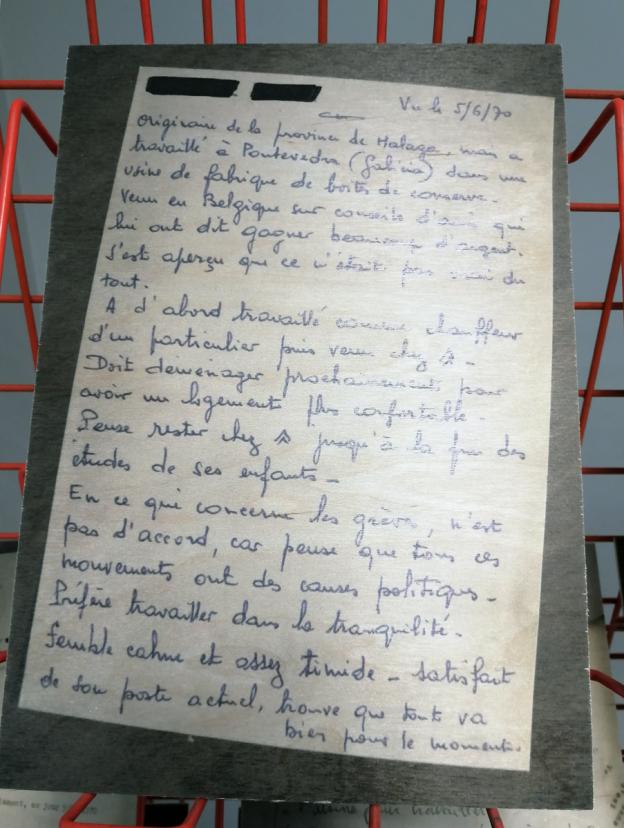 Vu le 5/6/70
Originaire de la province de Malaga, mais a
travaillé à Pontevedra (Galicia) dans une
usine de fabrique de boîtes de conserve.
Venu en Belgique sur conseils d'amis qui
lui ont dit gagner beaucoup d'argent.
S'est aperçu que ce n'était pas vrai du
tout.
A d'abord travaillé comme chauffeur
d'un particulier puis venu chez
Doit déménager prochainement pour
avoir un logement plus confortable.
Pense rester chez jusqu'à la fin des
études de ses enfants.
En ce qui concerne les grèves, n'est
pas d'accord, car pense que tous ces
mouvements ont des causes politiques.
Préfère travailler dans la tranquilité.
Semble calme et assez timide - satisfait
de son poste actuel, trouve que tout va
bien pour le moment.